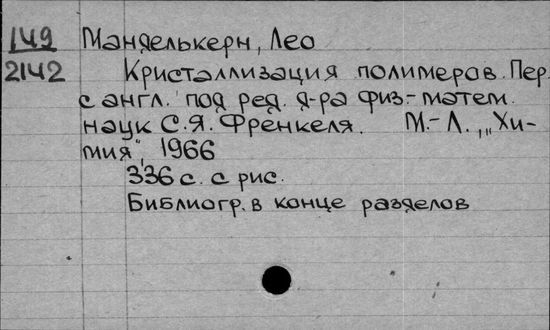 149 Манделькерн, Лео
2142 Кристаллизация полимеров. Пер.
с англ. под ред. д-ра физ.-матем.
наук С.Я. Френкеля. М.-Л., „Хи-
мия", 1966
336 с. с рис.
Библиогр. в конце разделов